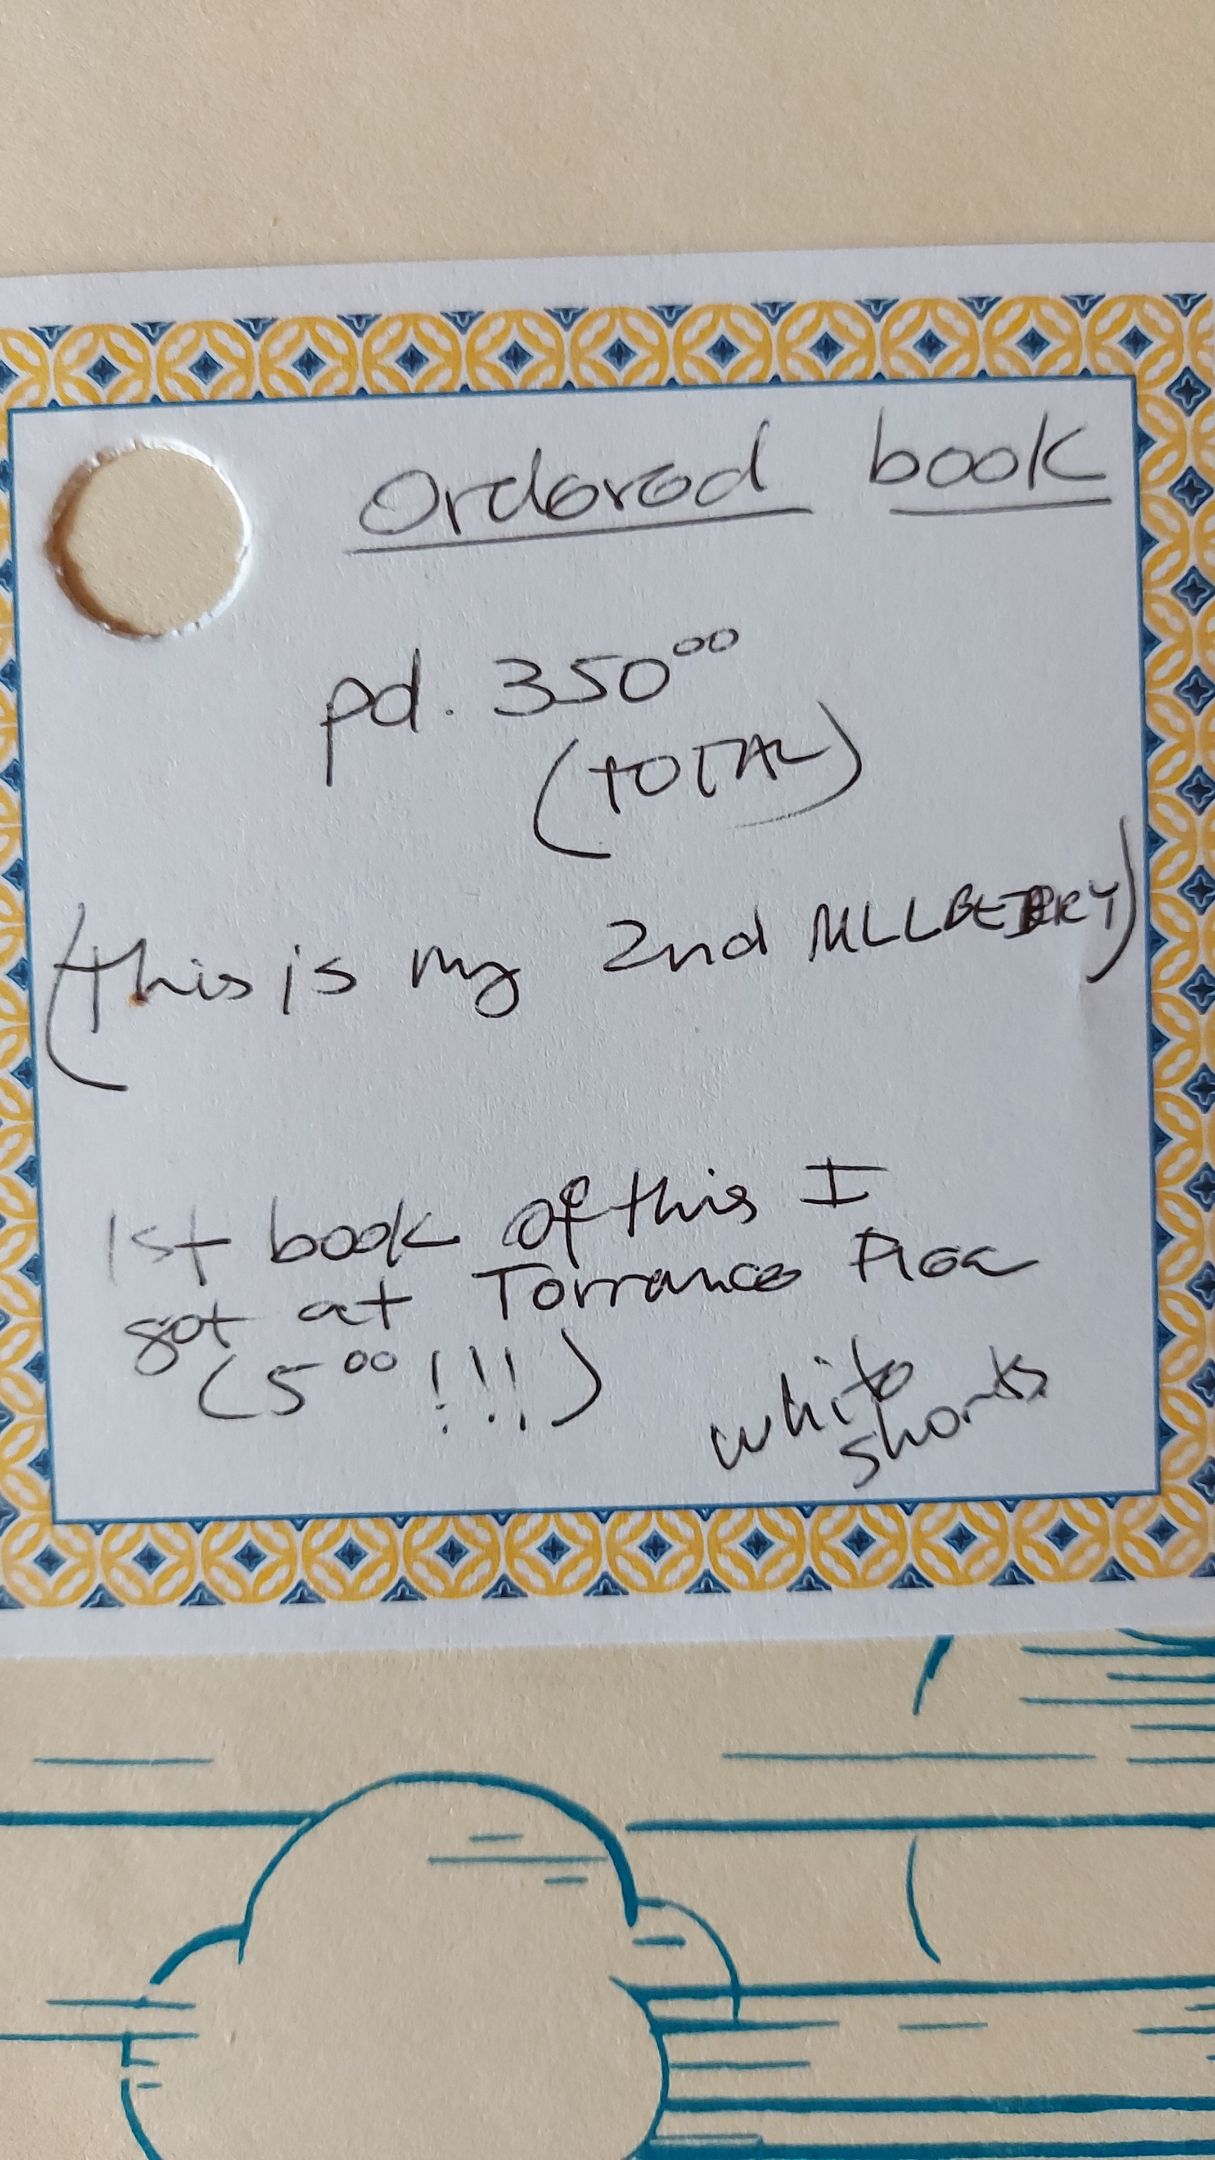 Ordered book
pd. 350⁰⁰
(TOTAL)
(this is my 2nd MLLBERRY)
1st book of this I
got at Torrance
(5⁰⁰!!!)
white
shorts